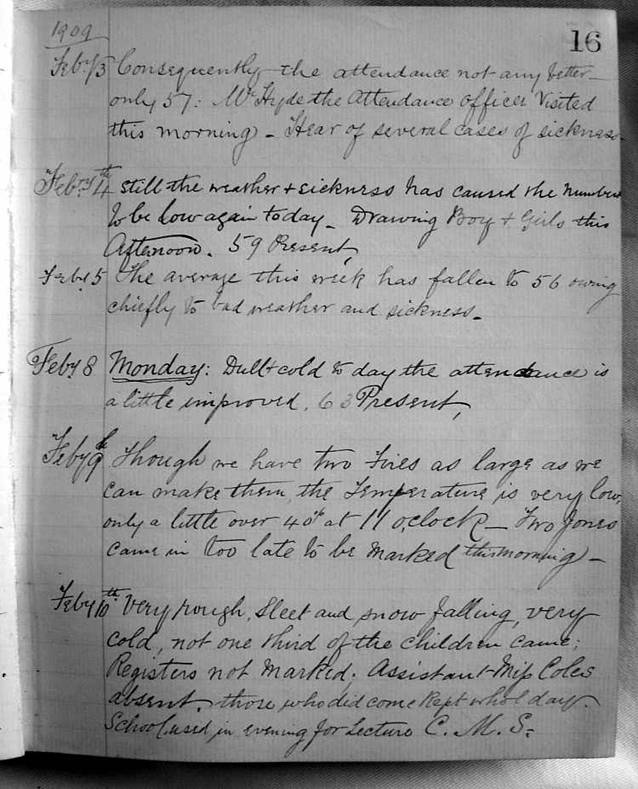 1909
16
Feby 3 Consequently the attendance not any better
only 57: Mr Hyde the Attendance Officer Visited
this morning - Hear of several cases of sickness.
Feby 4th still the weather + sickness has caused the number
to be low again today - Drawing Boy + Girls this
Afternoon. 59 Present,
Feby 5 The average this week has fallen to 56 owing
chiefly to bad weather and sickness -
Feby 8 Monday: Dull + cold to day the attendance is
a little improved, 63 Present,
Feby 9th Though we have two Fires as large as we
can make them, the Temperature is very low,
only a little over 40° at 11 o,clock - Two Jones
came in too late to be marked this morning -
Feby 10th Very rough, Sleet and snow falling, very
cold, not one third of the children came;
Registers not Marked. Assistant Miss Coles
absent. those who did come Kept whole day.
School used in evening for Lecture C. M. S.